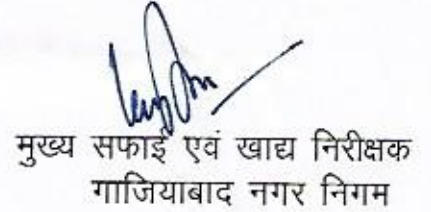 मुख्य सफाई एवं खाद्य निरीक्षक
गाजियाबाद नगर निगम